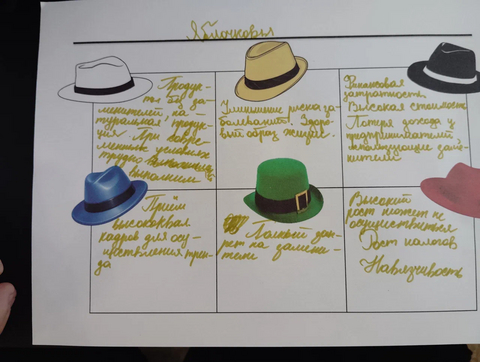 Яблочковы
Продук-
ты без за-
менителей, на-
туральная продук-
ция. При совре-
менных условиях
трудно
выполним
Уменьшение риска за-
болеваний. Здоро-
вый образ жизни.
Финансовая
затратность.
Высокая стоимость
Потеря дохода у
предпринимателей
использующие заме-
нители
Приём
высококвал.
кадров для осу-
ществления трен-
да
Полный зап-
рет на замени-
тели
Высокий
рост может не
осуществиться
Рост налогов
Навязчивость